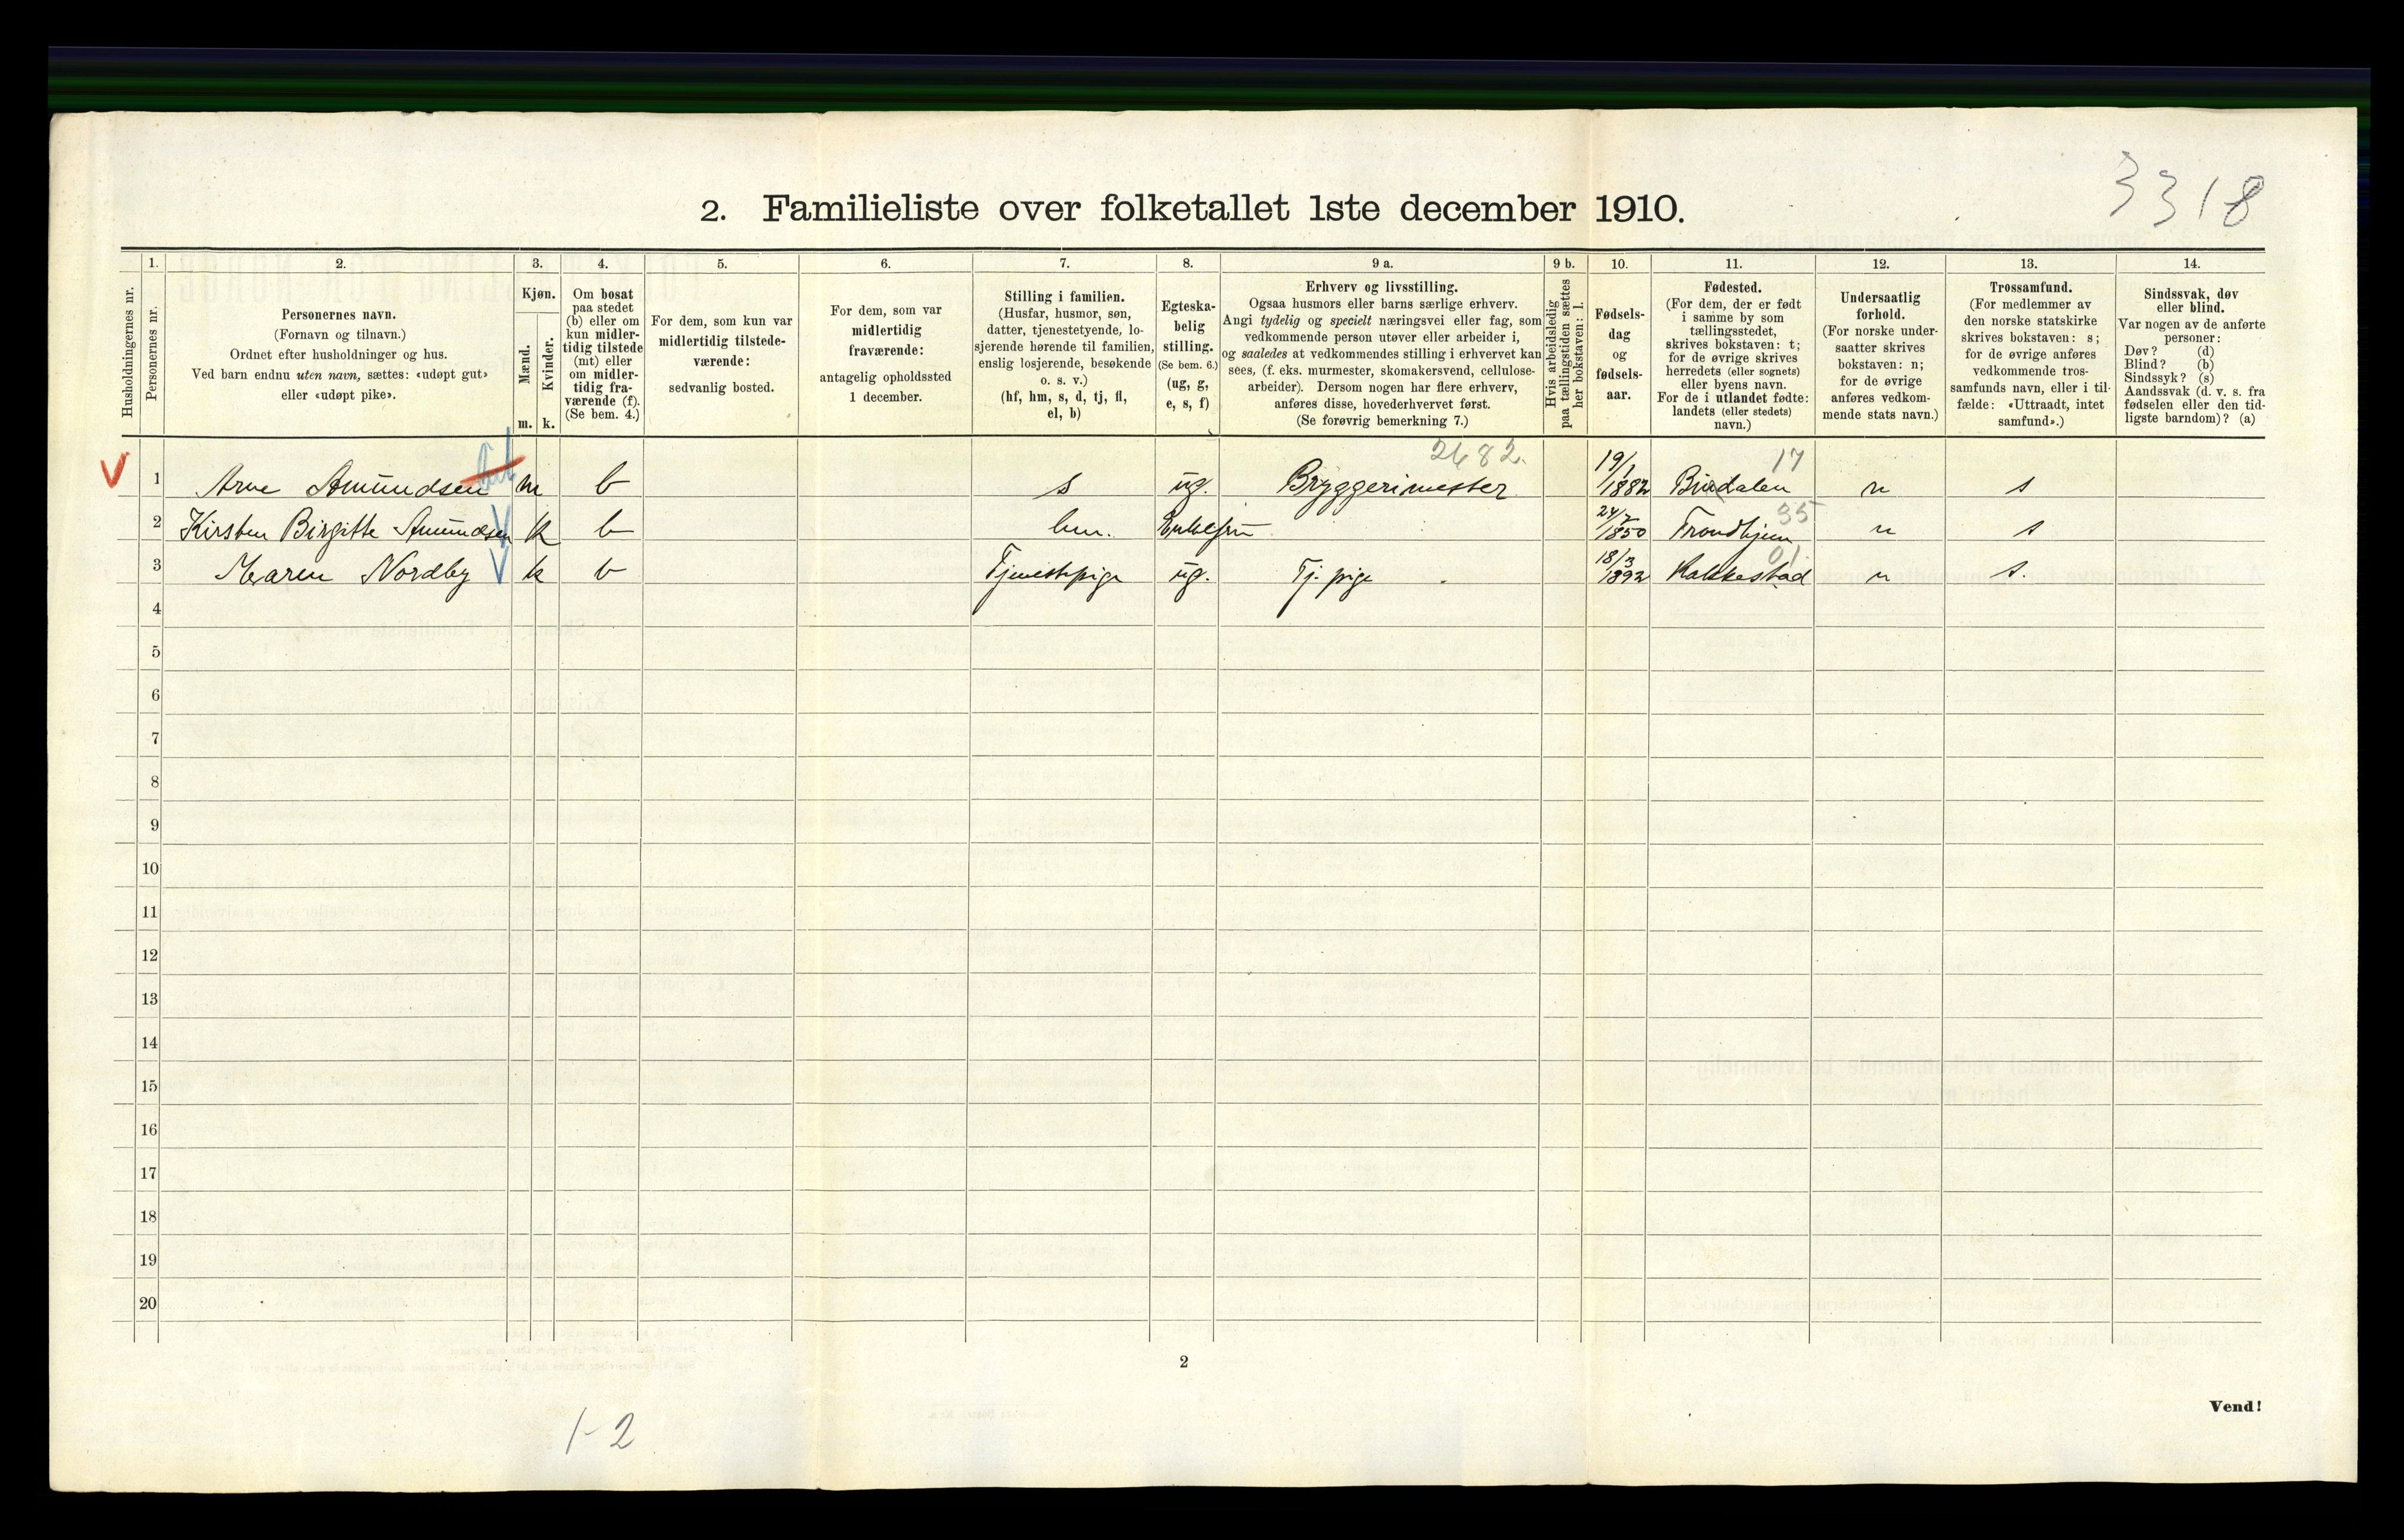 3318
2. Familieliste over folketallet 1ste december 1910.
Husholdningernes nr.
1.
Personernes nr.
2.
Personernes navn.
(Fornavn og tilnavn.)
Ordnet efter husholdninger og hus.
Ved barn endnu uten navn, sættes: «udøpt gut»
eller «udøpt pike».
3.
Kjøn.
Mænd.
Kvinder.
m. k.
4.
Om bosat
paa stedet
(b) eller om
kun midler-
tidig tilstede
(mt) eller
om midler-
tidig fra-
værende (f).
(Se bem. 4.)
5.
For dem, som kun var
midlertidig tilstede-
værende:
sedvanlig bosted.
6.
For dem, som var
midlertidig
fraværende:
antagelig opholdssted
1 december.
7.
Stilling i familien.
(Husfar, husmor, søn,
datter, tjenestetyende, lo-
sjerende hørende til familien,
enslig losjerende, besøkende
o. s. v.)
(hf, hm, s, d, tj, fl,
el, b)
8.
Egteska-
belig
stilling.
(Se bem. 6.)
(ug, g,
e, s, f)
9 a.
Erhverv og livsstilling.
Ogsaa husmors eller barns særlige erhverv.
Angi tydelig og specielt næringsvei eller fag, som
vedkommende person utøver eller arbeider i,
og saaledes at vedkommendes stilling i erhvervet kan
sees, (f. eks. murmester, skomakersvend, cellulose-
arbeider). Dersom nogen har flere erhverv,
anføres disse, hovederhvervet først.
(Se forøvrig bemerkning 7.)
9 b.
Hvis arbeidsledig
paa tællingstiden sættes
her bokstaven: l.
10.
Fødsels-
dag
og
fødsels-
aar.
11.
Fødested.
(For dem, der er født
i samme by som
tællingsstedet,
skrives bokstaven: t;
for de øvrige skrives
herredets (eller sognets)
eller byens navn.
For de i utlandet fødte:
landets (eller stedets)
navn.)
12.
Undersaatlig
forhold.
(For norske under-
saatter skrives
bokstaven: n;
for de øvrige
anføres vedkom-
mende stats navn.)
13.
Trossamfund.
(For medlemmer av
den norske statskirke
skrives bokstaven: s;
for de øvrige anføres
vedkommende tros-
samfunds navn, eller i til-
fælde: «Uttraadt, intet
samfund».)
14.
Sindssvak, døv
eller blind.
Var nogen av de anførte
personer:
Døv? (d)
Blind? (b)
Sindssyk? (s)
Aandssvak (d. v. s. fra
fødselen eller den tid-
ligste barndom)? (a)
2682. 17
1 Arne Amundsen m b s ug. Bryggerimester 19/1 1882 Bindalen n s
35
2 Kirsten Birgitte Amundsen k b hm. Enkefru 24/7 1850 Trondhjem n s
01.
3 Maren Nordby k b Tjenestepige ug. Tj. pige 18/3 1892 Rakkestad n s.
4
5
6
7
8
9
10
11
12
13
14
15
16
17
18
19
20
2
Vend!
1-2